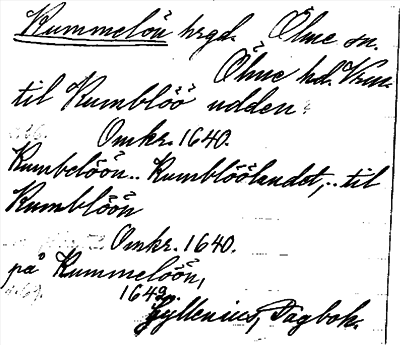 Kummelön hrgd. Ölme sn.
Ölme hd. Vrml.
til Kumblöö udden.
Omkr. 1640.
Kumbelöön.. Kumblöölandet,.. til
Kumblöön
Omkr. 1640.
på Kummelöön,
1649.
Gyllenius, Dagbok.